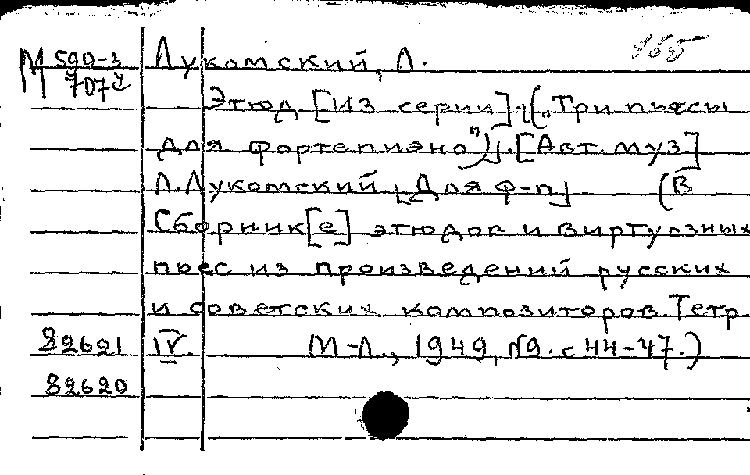 М 590-3 Лукомский, Л.
707
Этюд [Из серии] („Три пьесы
для фортепиано"). [Авт. муз]
Л. Лукомский [Для ф-п] (В
Сборник[е] этюдов и виртуозных
пьес из произведений русских
и советских композиторов. Тетр
82621 IV. М-Л., 1949, №9. с 44-47.)
82620